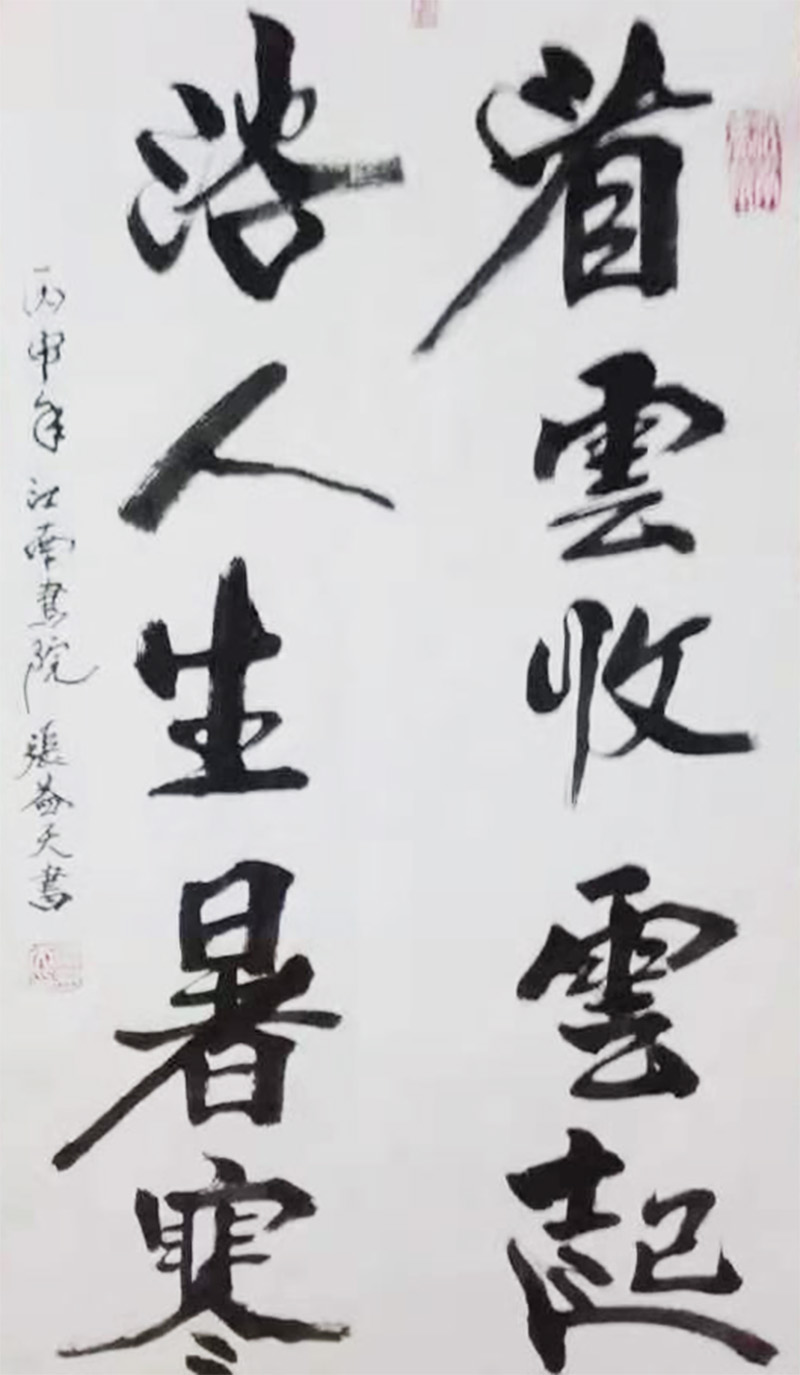 省雲收雲起
人生暑寒
丙申年江南書院張益天書